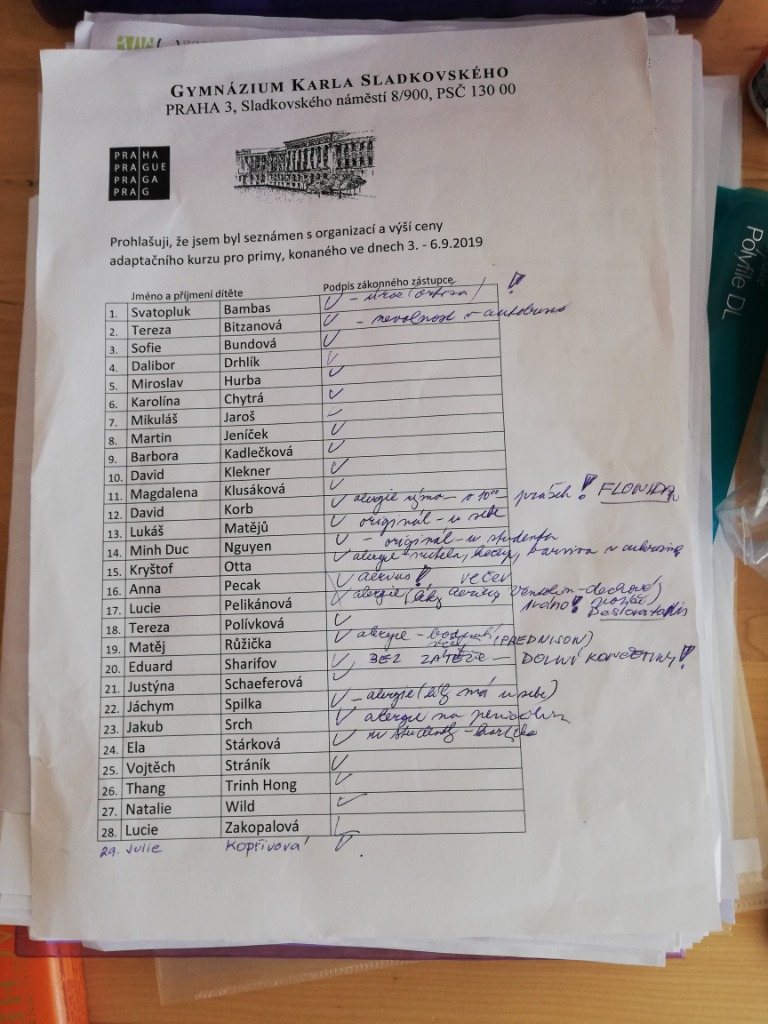 GYMNÁZIUM KARLA SLADKOVSKÉHO
PRAHA 3, Sladkovského náměstí 8/900, PSČ 130 00
PRA HA
PRA GUE
PRA GA
PRA G
Prohlašuji, že jsem byl seznámen s organizací a výší ceny
adaptačního kurzu pro primy, konaného ve dnech 3. - 6.9.2019
Jméno a příjmení dítěte Podpis zákonného zástupce
1. Svatopluk Bambas
2. Tereza Bitzanová - nevolnost v autobuse
3. Sofie Bundová
4. Dalibor Drhlík
5. Miroslav Hurba
6. Karolína Chytrá
7. Mikuláš Jaroš
8. Martin Jeníček
9. Barbora Kadlečková
10. David Klekner
11. Magdalena Klusáková
12. David Korb alergie rýma
13. Lukáš Matějů originál - u sebe
14. Minh Duc Nguyen - originál - u studenta
15. Kryštof Otta alergie
16. Anna Pecak aerius! večer
17. Lucie Pelikánová alergie (léky
18. Tereza Polívková
19. Matěj Růžička alergie - (PREDNISON)
20. Eduard Sharifov BEZ ZÁTĚŽE - DOLNÍ KONČETINY!
21. Justýna Schaeferová
22. Jáchym Spilka - alergie (léky má u sebe)
23. Jakub Srch alergie na penicilin
24. Ela Stárková
25. Vojtěch Stráník
26. Thang Trinh Hong
27. Natalie Wild
28. Lucie Zakopalová
29. Julie Kopřivová
Polyfile DL